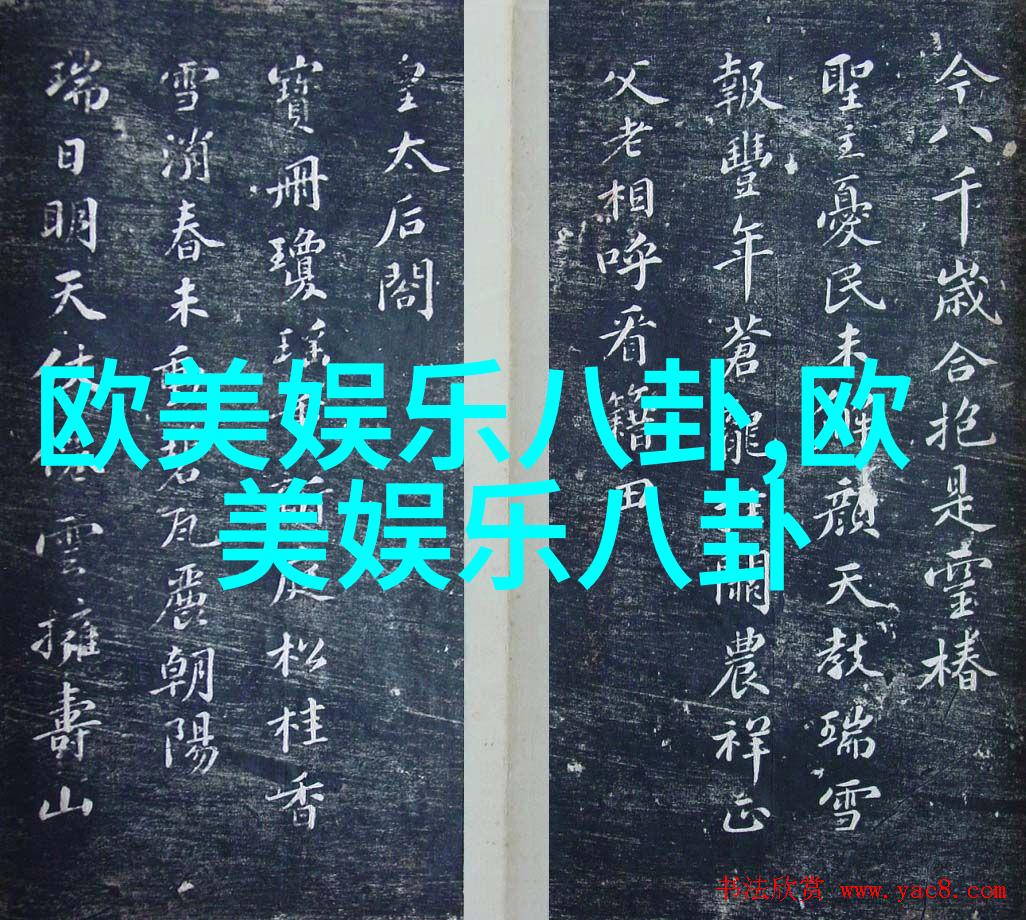 今八千歲合抱是靈椿
聖主憂民未解顏天教瑞雪
報豐年蒼龍闕農祥正
父老相呼看籍田
皇太后閣
寶冊瓊瑤重新庭松桂香
雪消春未動碧瓦麗朝陽
瑞日明天仗仙雲擁壽山
欧美娱乐八卦,欧
美娱乐八卦
书法欣赏 www.yac8.com